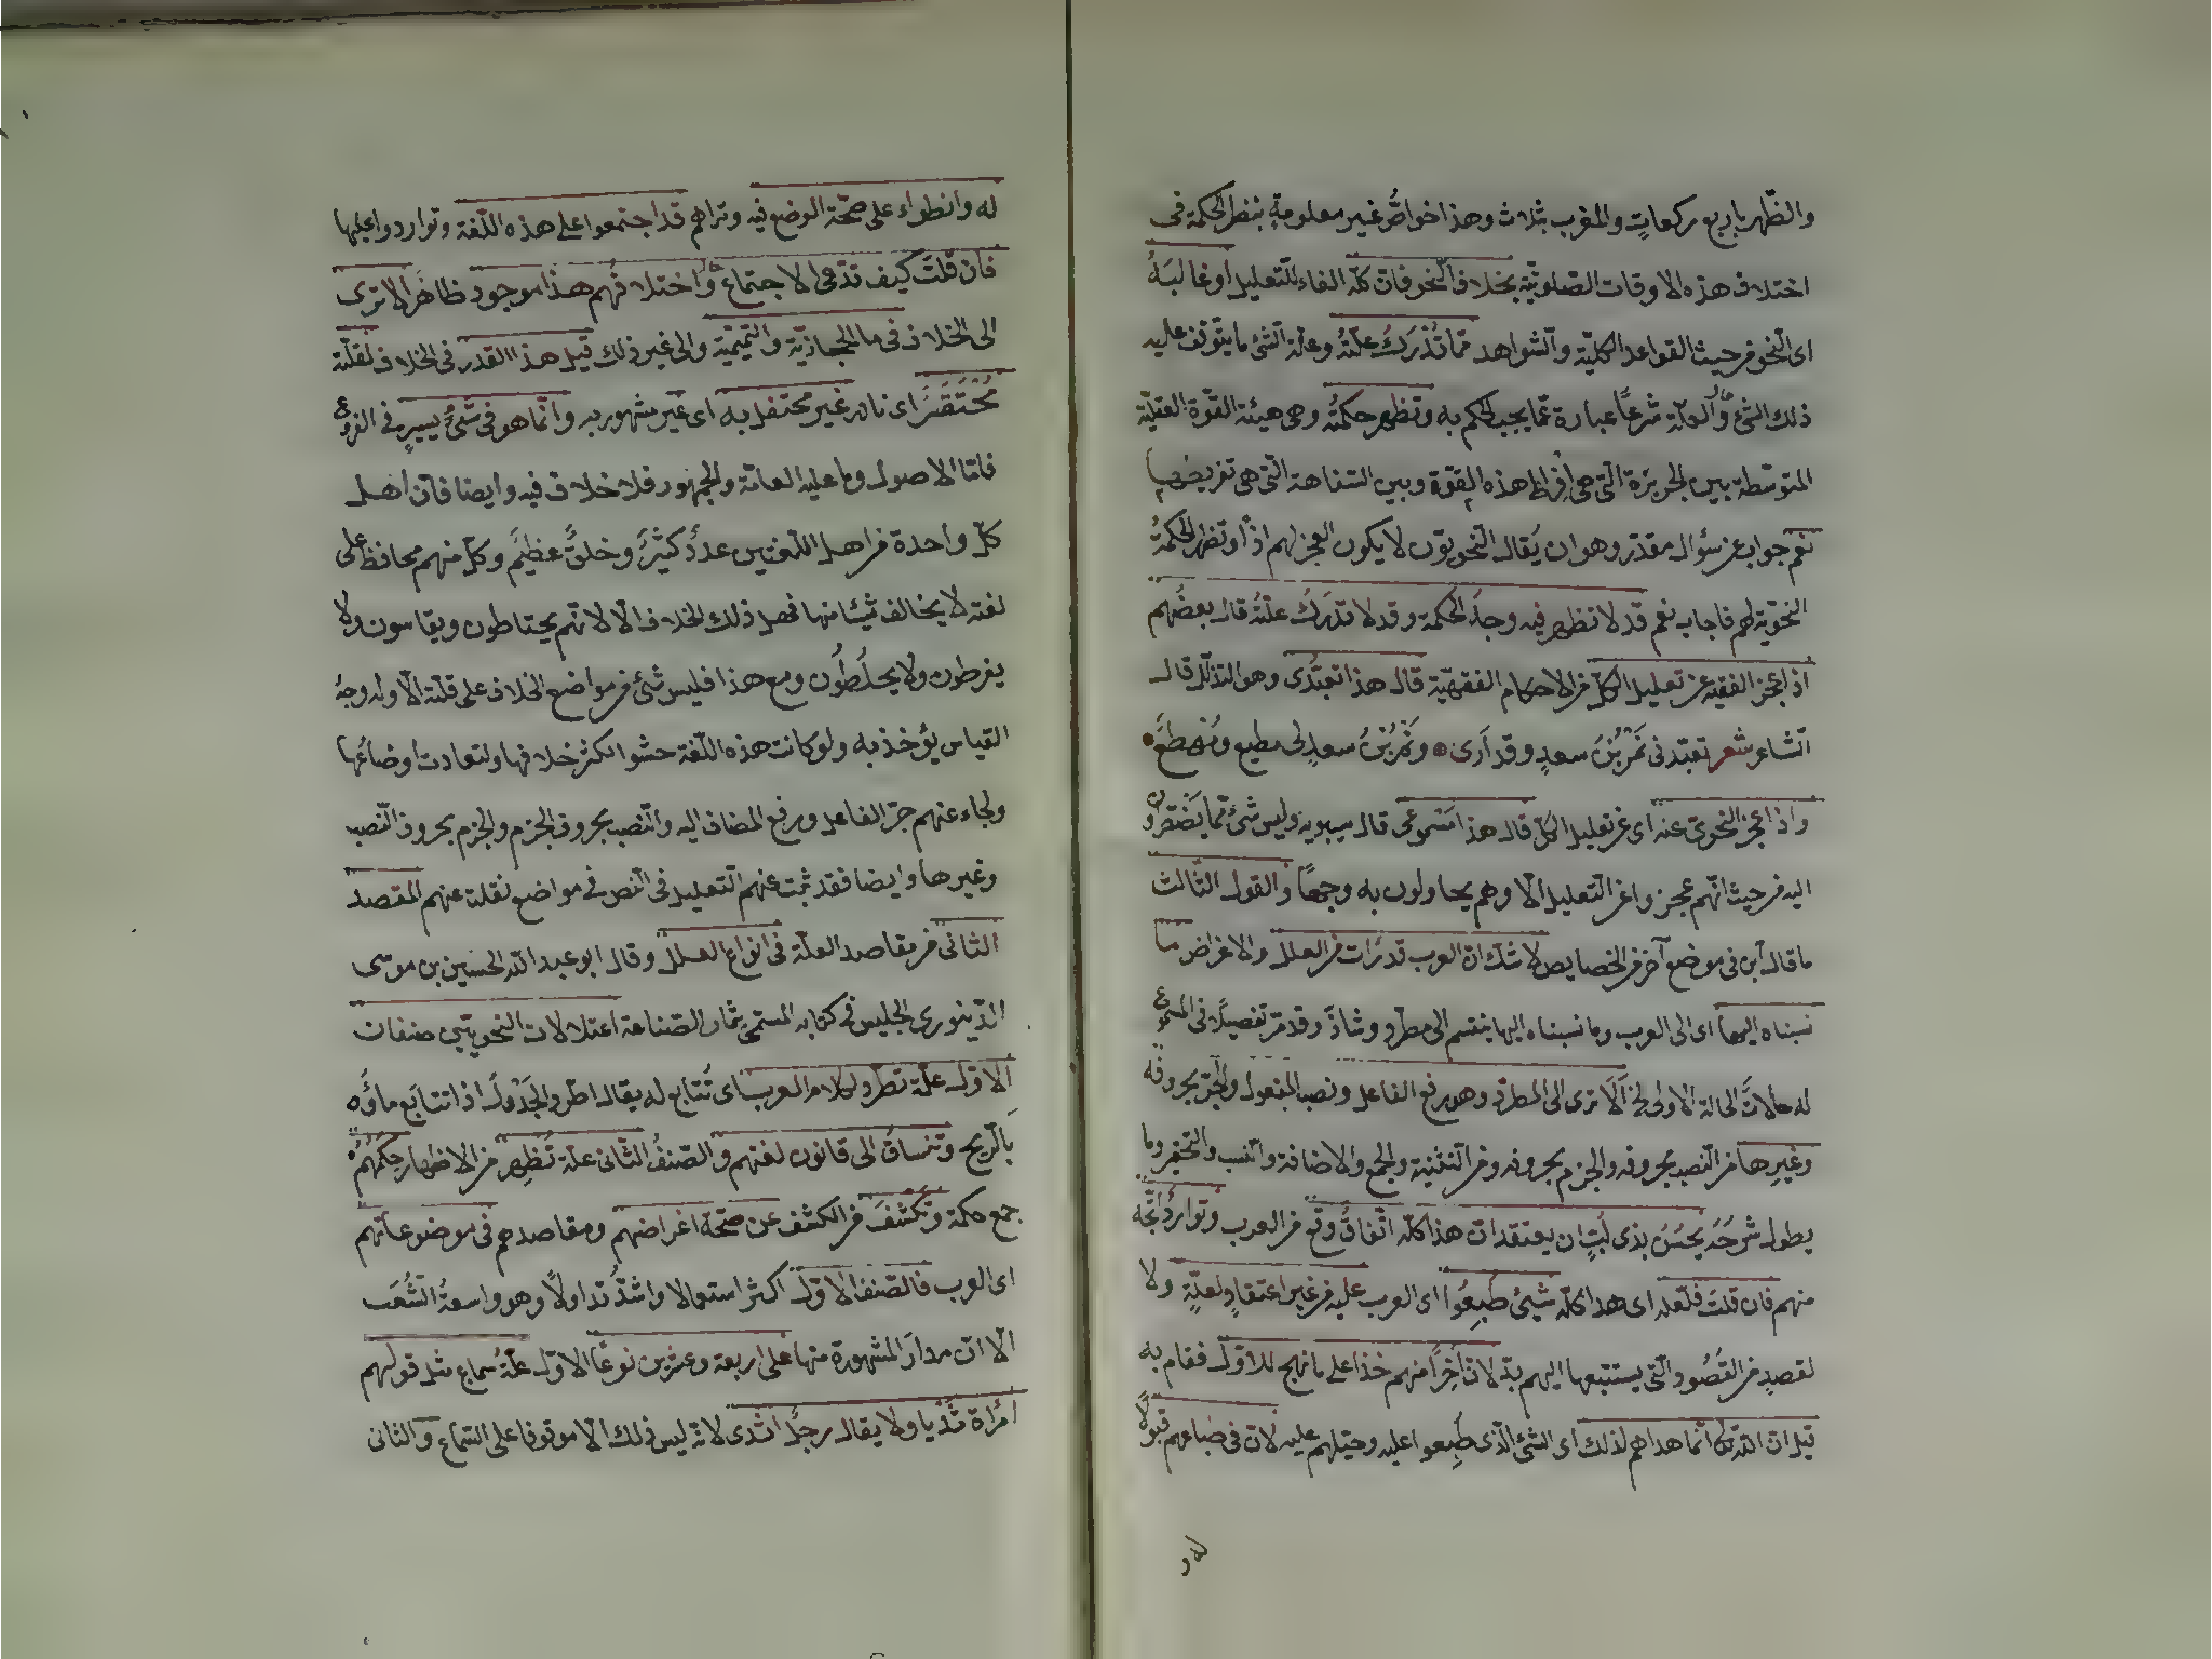 والظهر باربع ركعات والمغرب بثلاث وهذا خواص غير معلومة بنظر الحكمة فى
اختلاف هذه الاوقات الصلوتية بخلاف النحو فان كله الفاء للتعليل او غالبه
اى النحو من حيث القواعد الكلية والشواهد مما تدرك علته وعلة الشئ ما يتوقف عليه
ذلك الشئ والعلة شرعا عبارة عما يجب الحكم به وتظهر حكمته وهى هيئة القوة العقلية
المتوسطة بين الجربزة التى هى افراط هذه القوة وبين السفاهة التى هى تفريضها
نعم جواب عن سؤال مقدر وهو ان يقال النحويون لا يكون العجز لهم اذا وتظهر الحكمة
النحوية لهم فاجاب نعم قد لا تظهر فيه وجه الحكمة وقد لا تدرك علته قال بعضهم
اذا عجز الفقيه عن تعليل الكل من الاحكام الفقهية قال هذا تعبدى وهو التذلل قال
الشاعر شعر تعبدنى نمر بن سعد وقد ارى ونمر بن سعد لى مطيع ومهطع
واذا عجز النحوى عنه اى عن تعليل الكل قال هذا مسموعى قال سيبويه وليس شئ مما يضطرون
اليه من حيث انهم عجزوا عن التعليل الا وهم يحاولون به وجها والقول الثالث
ما قاله ابن فى موضع آخر من الخصايص لا شك ان العرب قد رات من العلل والاغراض ما
نسبناه اليها اى الى العرب وما نسبناه اليها ينقسم الى مطرد وشاذ وقد مر تفصيلا فى المسموع
له حالات الحالة الاولى الخ الا ترى الى المطرد وهو رفع الفاعل ونصب المفعول والجر بحروفه
وغيرها من النصب بحروفه والجزم بحروفه ومن التثنية والجمع والاضافة والنسب والتحقير وما
يطول شرحه يحسن بذى لب ان يعتقد ان هذا كله اتفاق وقع من العرب وتوارد اتجه
منهم فان قلت فلعله اى هذا كله شئ طبعوا اى العرب عليه من غير اعتقاد لعلة ولا
لقصد من القصود التى يستتبعها اليهم بل لان آخرا منهم حذا على ما نهج للاول فقام به
قيل ان الله تعالى انما هداهم لذلك اى الشئ الذى طبعوا عليه وحيلهم عليه لان فى ضباعهم قبولا
له و
له وانطواء على صحة الوضع فيه وتراهم قد اجتمعوا على هذه اللغة وتواردوا عليها
فان قلت كيف تدعى الاجتماع واختلافهم هذا موجود ظاهر الا ترى
الى الخلاف فى ما الحجازية والتميمية والى غير ذلك قيل هذا القدر فى الخلاف لقلته
محتقر اى نادر غير محتفل به اى غير مشهور به وانما هو فى شئ يسير فى الفروع
فاما الاصول وما عليه العامة والجمهور فلا خلاف فيه وايضا فان اهل
كل واحدة من اهل اللغتين عدد كثير وخلق عظيم وكل منهم محافظ على
لغته لا يخالف شيئا منها فهل ذلك الخلاف الا لانهم يحتاطون ويقاسون ولا
يفرطون ولا يخلطون ومع هذا فليس شئ من مواضع الخلاف على قلته الا وله وجه
القياس يؤخذ به ولو كانت هذه اللغة حشوا لكثر خلافها ولتعادت اوضاعها
ولجاء عنهم جر الفاعل ورفع المضاف اليه والنصب بحروف الجزم والجزم بحروف النصب
وغيرها وايضا فقد ثبت عنهم التعليل فى النص فى مواضع نقلت عنهم المقصد
الثانى من مقاصد العلة فى انواع العلل وقال ابو عبد الله الحسين بن موسى
الدينورى الجليس فى كتابه المسمى بثمار الصناعة اعتلالات النحويين صنفان
الاول علة تطرد لكلام العرب اى تتابع له يقال اطرد الجدول اذا تتابع ماؤه
بالريح وتنساق الى قانون لغتهم والصنف الثانى علة تظهر من الاظهار حكمهم
جمع حكمة وتكشف من الكشف عن صحة اغراضهم ومقاصدهم فى موضوعاتهم
اى العرب فالصنف الاول اكثر استعمالا واشد تداولا وهو واسعة الشعب
الا ان مدار المشهورة منها على اربعة وعشرين نوعا الاول علة سماع مثل قولهم
امراة ثديا ولا يقال رجل اثدى لانه ليس ذلك الا موقوفا على السماع والثانى